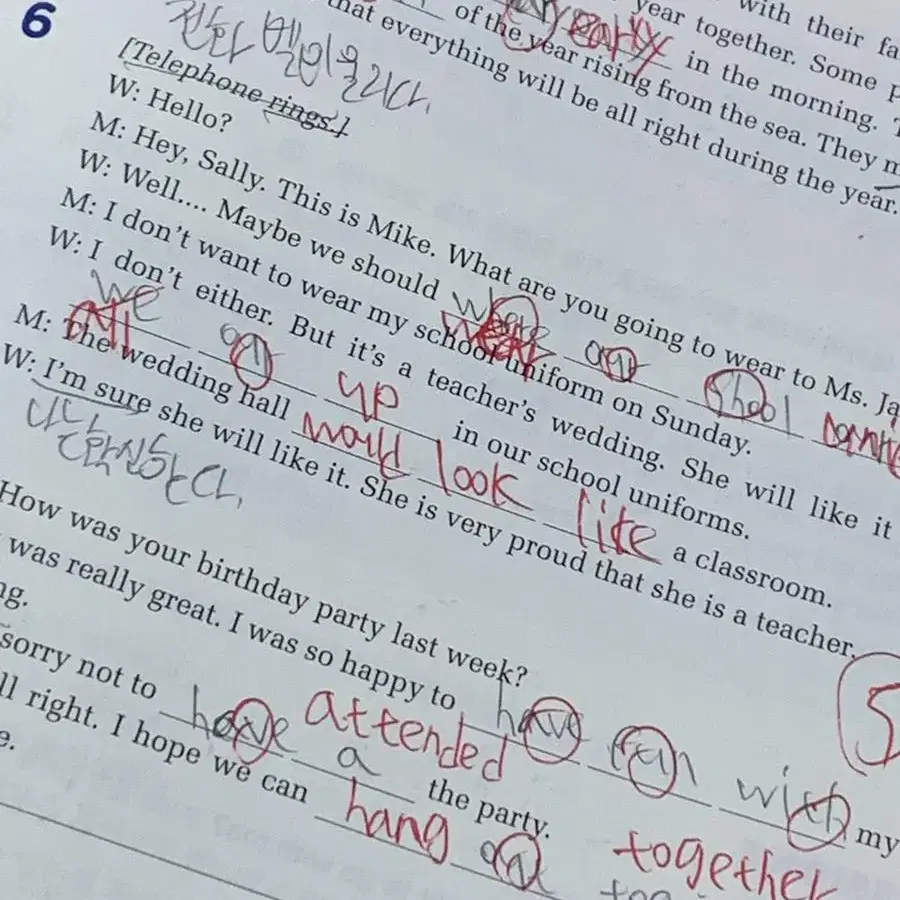 year together. Some
with their fa
of the year rising early in the morning.
that everything will be all right during the year.
from the sea. They
6
전화 벨이 울리다.
[Telephone rings.]
W: Hello?
M: Hey, Sally. This is Mike. What are you going to wear to Ms. Ja
W: Well.... Maybe we should wear our shool
M: I don't want to wear my school uniform on Sunday.
W: I don't either. But it's a teacher's wedding. She will like it
we all up in our school uniforms.
M: The wedding hall would look like a classroom.
W: I'm sure she will like it. She is very proud that she is a teacher.
확신한다.
How was your birthday party last week?
was really great. I was so happy to have with my
ng.
sorry not to have attended a the party.
ll right. I hope we can hang together
e.
5